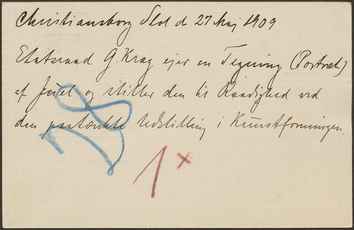 Christiansborg Slot d 27 Maj 1909
Etatsraad G Krag ejer en Tegning (Portræt)
af Juel og stiller den til Raadighed ved
den paatænkte Udstilling i Kunstforeningen.
1×